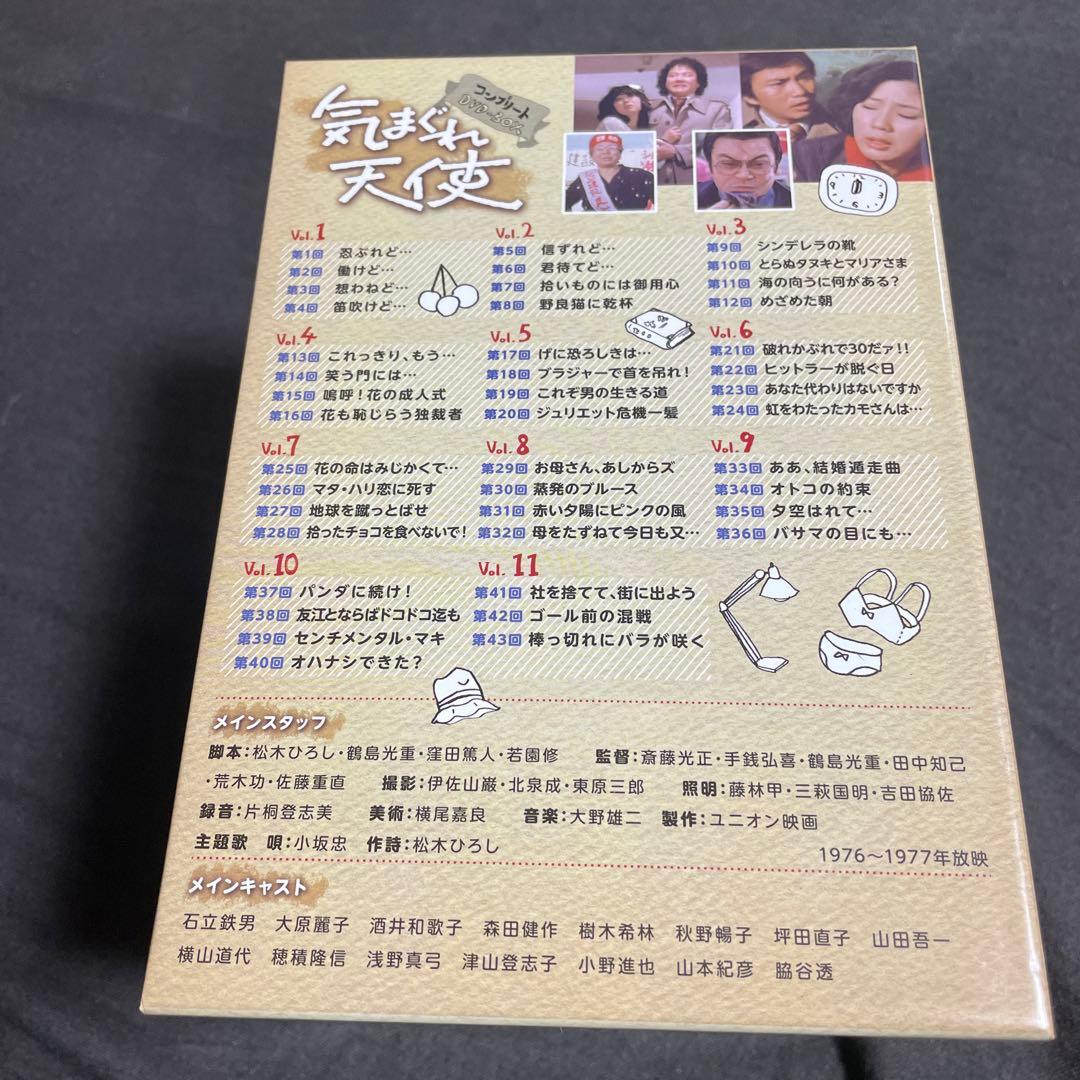 気まぐれ
天使
コンプリート
DVD-BOX
Vol.1
第1回 忍ぶれど…
第2回 働けど…
第3回 想わねど…
第4回 笛吹けど…
Vol.2
第5回 信ずれど…
第6回 君待てど…
第7回 拾いものには御用心
第8回 野良猫に乾杯
Vol.3
第9回 シンデレラの靴
第10回 とらぬタヌキとマリアさま
第11回 海の向うに何がある?
第12回 めざめた朝
Vol.4
第13回 これっきり、もう…
第14回 笑う門には…
第15回 嗚呼!花の成人式
第16回 花も恥じらう独裁者
Vol.5
第17回 げに恐ろしきは…
第18回 ブラジャーで首を吊れ!
第19回 これぞ男の生きる道
第20回 ジュリエット危機一髪
Vol.6
第21回 破れかぶれで30だァ!!
第22回 ヒットラーが脱ぐ日
第23回 あなた代わりはないですか
第24回 虹をわたったカモさんは…
Vol.7
第25回 花の命はみじかくて…
第26回 マタ・ハリ恋に死す
第27回 地球を蹴っとばせ
第28回 拾ったチョコを食べないで!
Vol.8
第29回 お母さん、あしからズ
第30回 蒸発のブルース
第31回 赤い夕陽にピンクの風
第32回 母をたずねて今日も又…
Vol.9
第33回 ああ、結婚遁走曲
第34回 オトコの約束
第35回 夕空はれて…
第36回 バサマの目にも…
Vol.10
第37回 パンダに続け!
第38回 友江とならばドコドコ迄も
第39回 センチメンタル・マキ
第40回 オハナシできた?
Vol.11
第41回 社を捨てて、街に出よう
第42回 ゴール前の混戦
第43回 棒っ切れにバラが咲く
メインスタッフ
脚本:松木ひろし・鶴島光重・窪田篤人・若園修 監督:斎藤光正・手銭弘喜・鶴島光重・田中知己
・荒木功・佐藤重直 撮影:伊佐山巌・北泉成・東原三郎 照明:藤林甲・三萩国明・吉田協佐
録音:片桐登志美 美術:横尾嘉良 音楽:大野雄二 製作:ユニオン映画
主題歌 唄:小坂忠 作詩:松木ひろし
1976〜1977年放映
メインキャスト
石立鉄男 大原麗子 酒井和歌子 森田健作 樹木希林 秋野暢子 坪田直子 山田吾一
横山道代 穂積隆信 浅野真弓 津山登志子 小野進也 山本紀彦 脇谷透